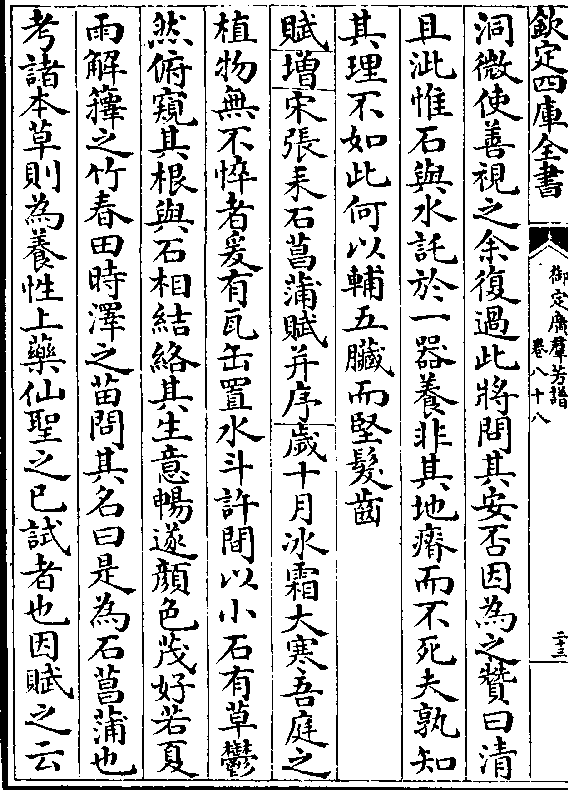 欽定四庫全書
御定廣羣芳譜
卷八十八
二十三
洞微使善視之余復過此將問其安否因為之贊曰清
且泚惟石與水託於一器養非其地瘠而不死夫孰知
其理不如此何以輔五臟而堅髮齒
賦增宋張耒石菖蒲賦并序歲十月冰霜大寒吾庭之
植物無不悴者爰有瓦缶置水斗許間以小石有草鬱
然俯窺其根與石相結絡其生意暢遂顔色茂好若夏
雨解籜之竹春田時澤之苗問其名曰是為石菖蒲也
考諸本草則為養性上藥仙聖之已試者也因賦之云